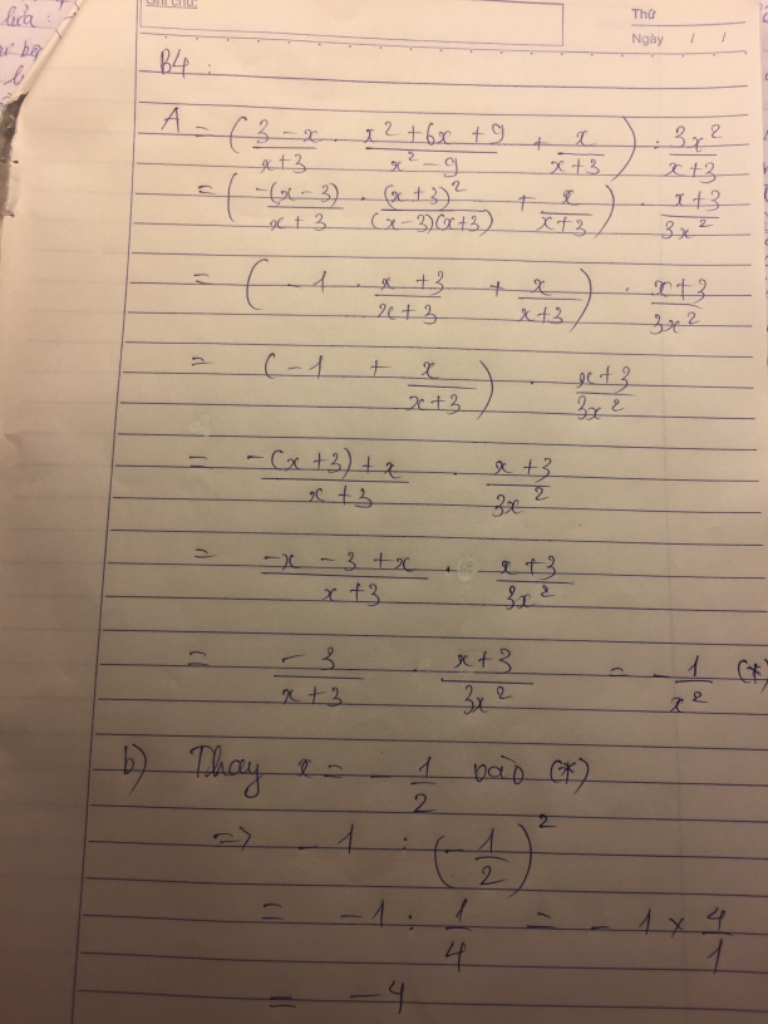 lửa :
Ghi chú:
Thứ
Ngày / /
B4 :
A = ( (3 - x)/(x+3) . (x² + 6x + 9)/(x² - 9) + x/(x+3) ) : 3x²/(x+3)
= ( -(x - 3)/(x + 3) . (x+3)²/((x-3)(x+3)) + x/(x+3) ) . (x+3)/(3x²)
= ( -1 . (x+3)/(x+3) + x/(x+3) ) . (x+3)/(3x²)
= ( -1 + x/(x+3) ) . (x+3)/(3x²)
= (-(x+3) + x)/(x+3) . (x+3)/(3x²)
= (-x - 3 + x)/(x+3) . (x+3)/(3x²)
= -3/(x+3) . (x+3)/(3x²) = -1/x² (*)
b) Thay x = -1/2 vào (*)
=> -1 : (-1/2)²
= -1 : 1/4 = -1 × 4/1
= -4